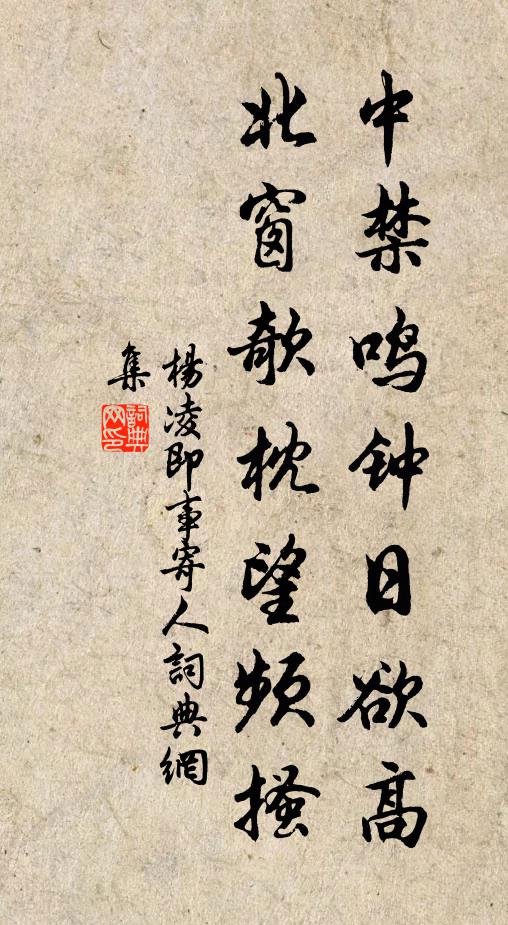 中禁鸣钟日欲高
北窗欹枕望频搔
楊凌即事寄人詞典網
集
詞典網印